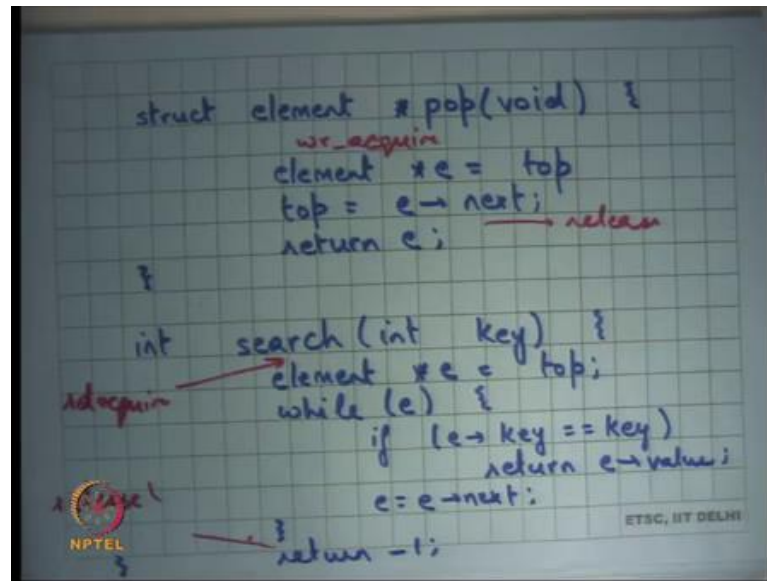 struct element * pop(void) {
wr_acquire
element *e = top
top = e → next;
release
return e;
}
int search(int key) {
rd acquire
element *e = top;
while (e) {
if (e→ key == key)
return e→value;
e = e→next;
}
return -1;
}
NPTEL
ETSC, IIT DELHI